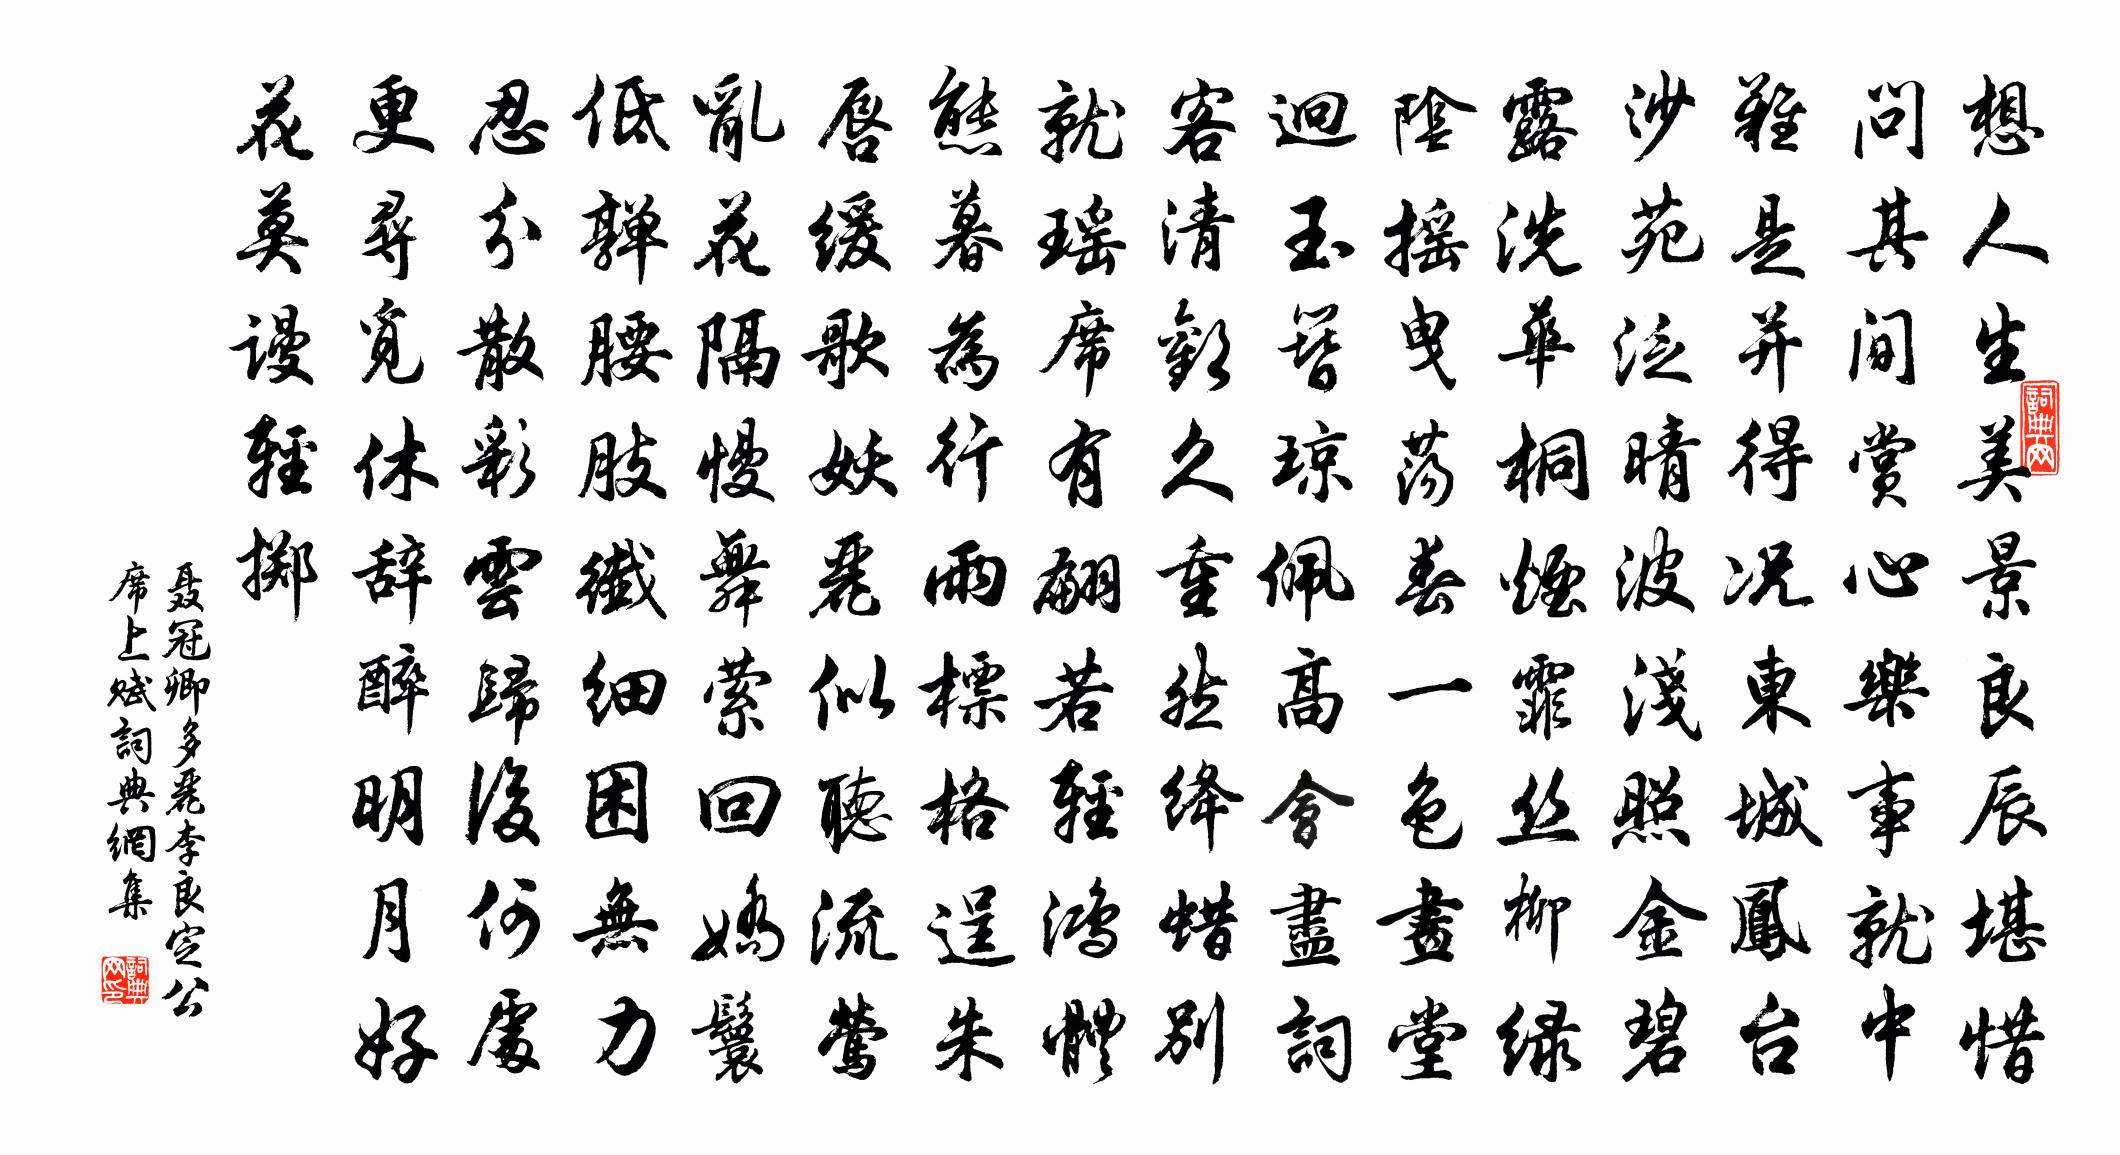 想人生美景良辰堪惜
問其間賞心樂事就中
難是并得況東城鳳台
沙苑泛晴波淺照金碧
露洗華桐煙霏丝柳绿
陰摇曳荡春一色畫堂
迴玉簪琼佩高會盡詞
客清歡久重然绛蜡别
就瑶席有翩若輕鴻體
態暮為行雨標格逞朱
唇缓歌妖麗似聽流莺
亂花隔慢舞萦回嬌鬟
低亸腰肢纖细困無力
忍分散彩雲歸後何處
更尋覓休辞醉明月好
花莫謾輕掷
聂冠卿多麗李良定公
席上赋詞典網集
詞典网
詞典网印